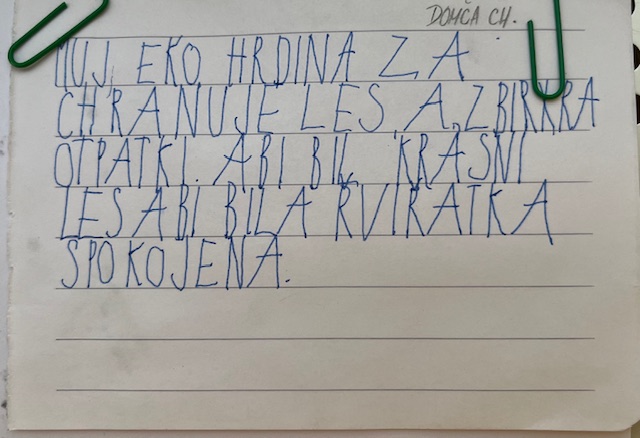 DOMČA CH.
MUJ EKO HRDINA ZA
CHRANUJE LES A ZBIRKRA
OTPATKI. ABI BIL KRASNI
LES ABI BILA RVIRATKA
SPOKOJENA.